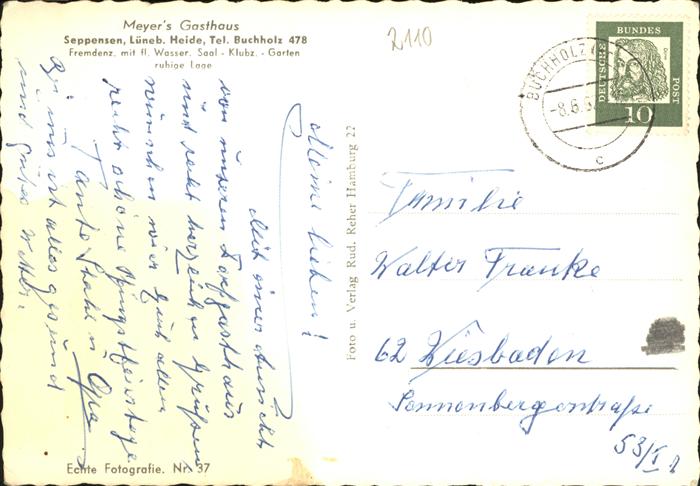 Meyer's Gasthaus
Seppensen, Lüneb. Heide, Tel. Buchholz 478
Fremdenz. mit fl. Wasser. Saal - Klubz. - Garten
ruhige Lage
2110
BUCHHOLZ
-8.6.6
c
DEUTSCHE BUNDES POST
10
Meine Lieben!
Mit einer Ansicht
von unserem Dorfgasthaus
und recht herzlichen Grüßen
wünschen wir Euch allen
recht schöne Pfingstfeiertage
Tante Stahl u. Opa
Bei uns ist alles gesund
und gutes Wetter.
Foto u. Verlag Rud. Reher Hamburg 22
Familie
Walter Franke
62 Wiesbaden
Sonnenbergerstraße
53/I
Echte Fotografie. Nr. 37